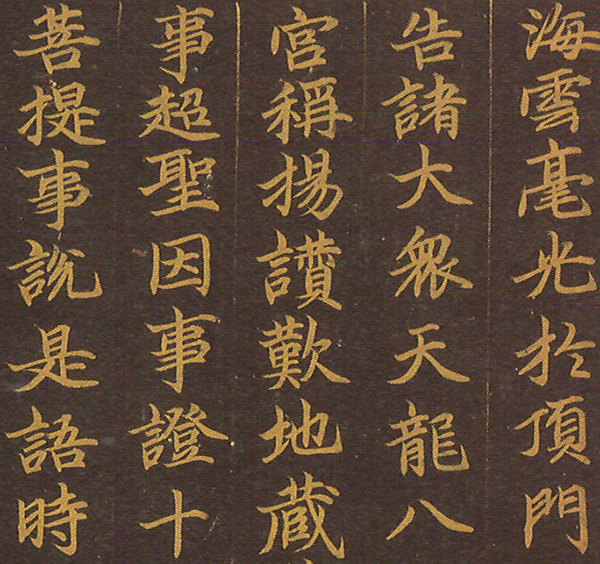 海雲毫光於頂門
告諸大衆天龍八
宮稱揚讃歎地蔵
事超聖因事證十
菩提事說是語時